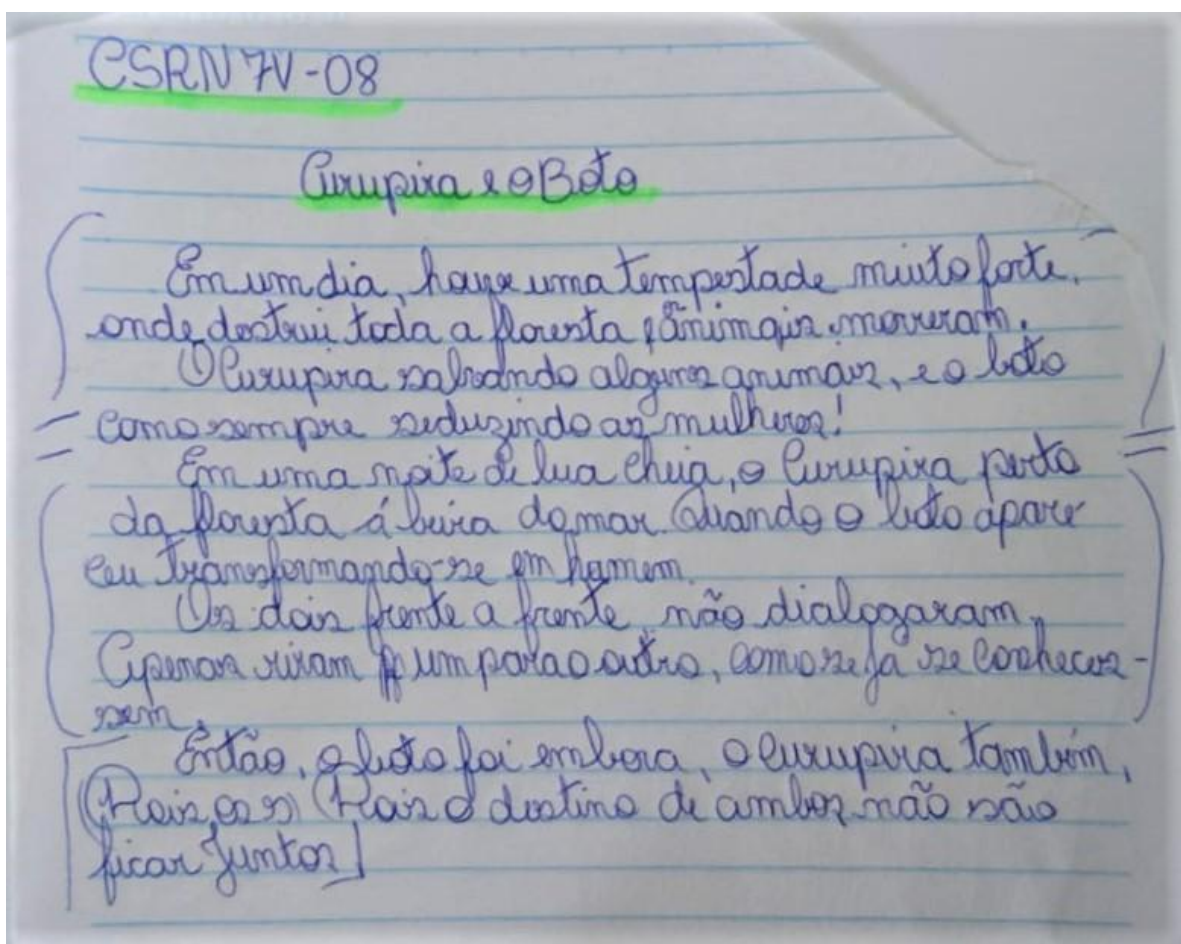 CSRN7V-08
Curupira e o Boto
Em um dia, houve uma tempestade muito forte,
onde destrui toda a floresta, animais morreram.
O Curupira salvando algums animais, e o boto
como sempre seduzindo as mulheres!
Em uma noite de lua cheia, o Curupira perto
da floresta á beira do mar. Quando o boto apare
ceu transformando-se em homem.
Os dois frente a frente, não dialogaram,
Apenas riram um para o outro, como se já se conheces-
sem.
Então, o boto foi embora, o Curupira também,
Pois Pois o destino de ambos não são
ficar juntos